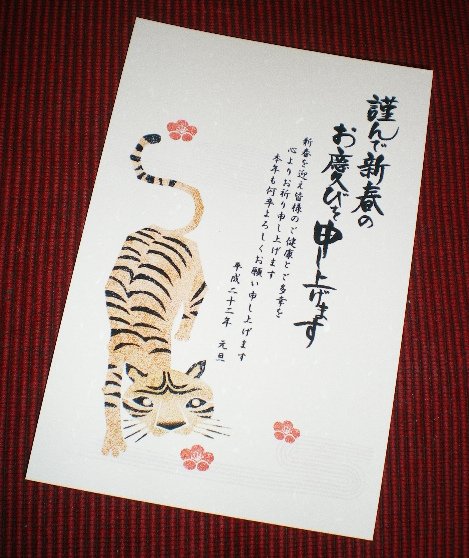 謹んで新春の
お慶びを申し上げます
新春を迎え皆様のご健康とご多幸を
心よりお祈り申し上げます
本年も何卒よろしくお願い申し上げます
平成二十二年　元旦